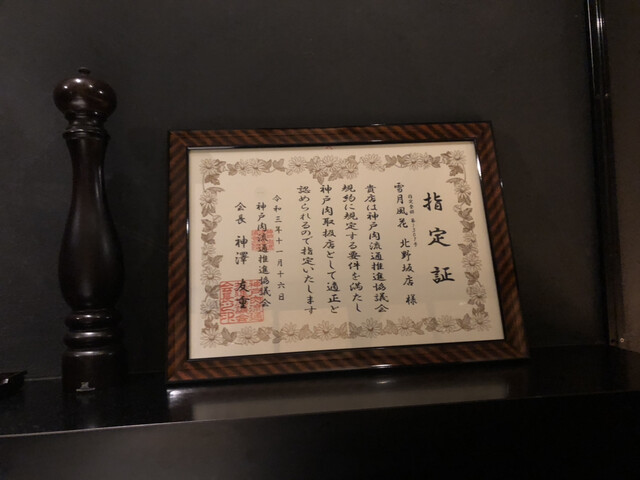 指定証
雪月風花 北野坂店 様
貴店は神戸肉流通推進協議会
規約に規定する要件を満たし
神戸肉取扱店として適正と
認められるので指定いたします
令和三年十一月十六日
神戸肉流通推進協議会
会長 神澤 友重